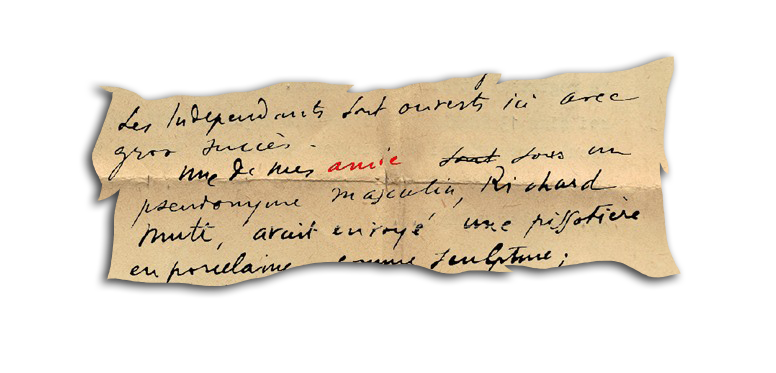 Les Indépendants sont ouverts ici avec
gros succès.
Une de mes amie sous un
pseudonyme masculin, Richard
Mutt, avait envoyé une pissotière
en porcelaine comme sculpture;